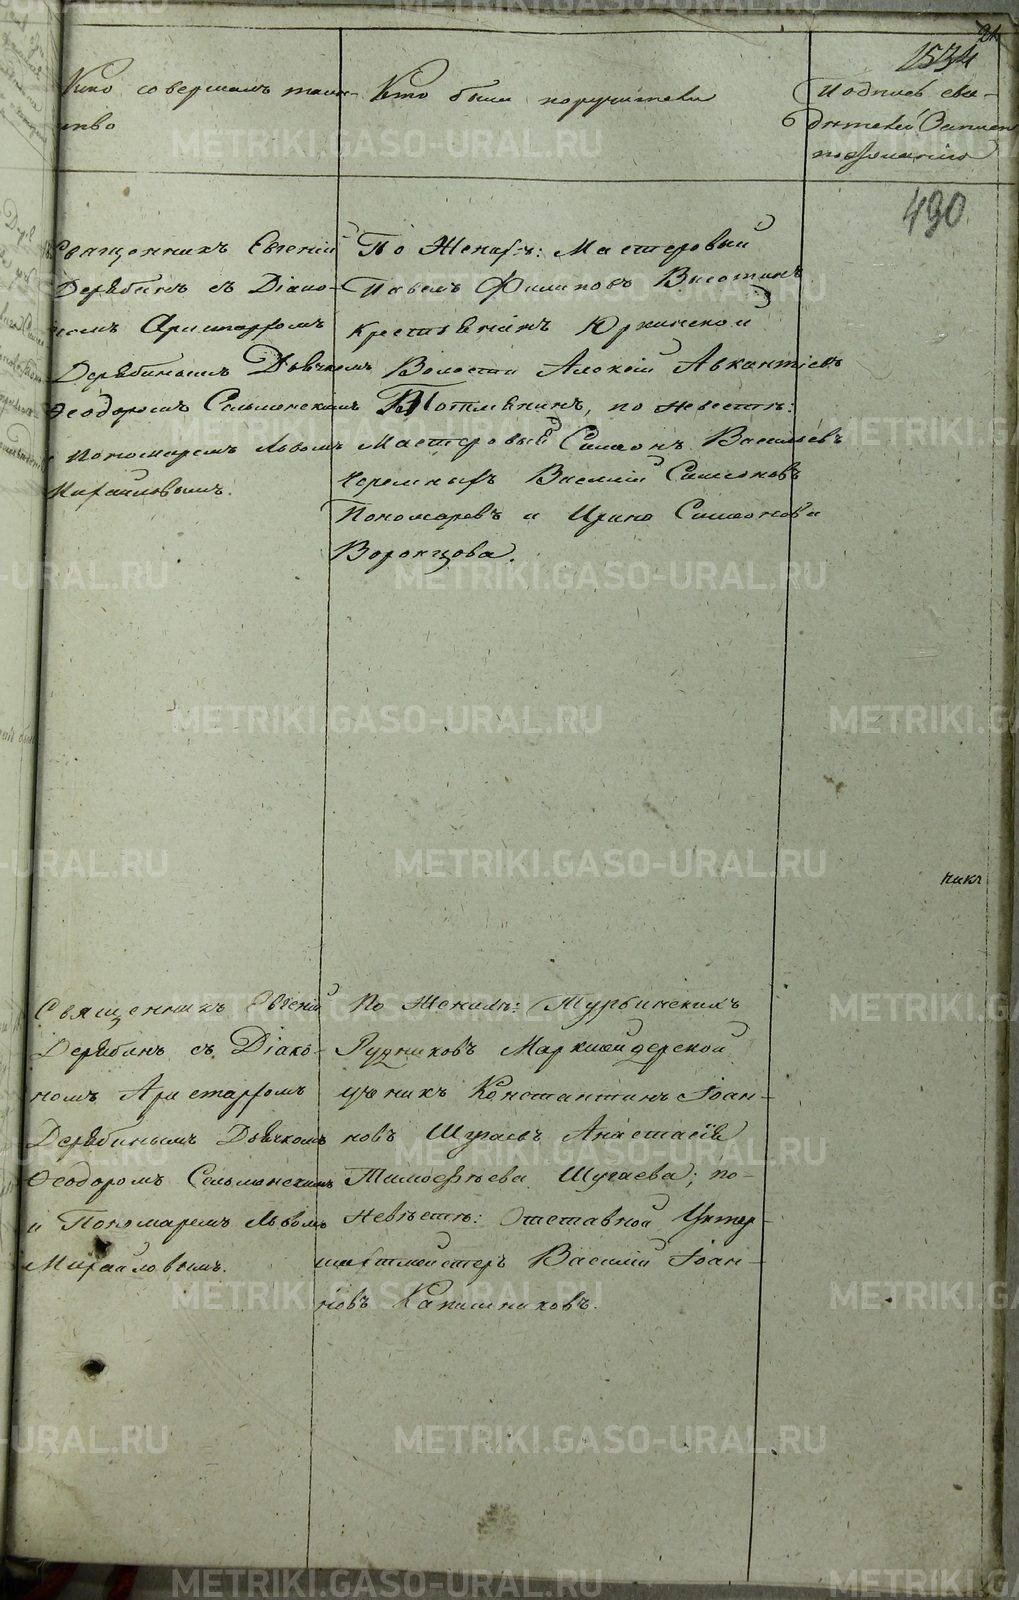 24
1534
Кто совершалъ таин-
ство
Кто были поручители
Подпись сви-
дѣтелей записи
по желанію
490
Священникъ Евгеній
Дерябинъ съ Діако-
номъ Аристархомъ
Дерябинымъ Дьячкомъ
Ѳеодоромъ Сельменскимъ
и Пономаремъ Львомъ
Михайловымъ.
По Женихѣ: Мастеровый
Павелъ Филиповъ
Крестьянинъ Юрминской
Волости Алексій
по невестѣ:
Мастеровый Симеонъ Васильевъ
Черемныхъ Василій Симеоновъ
Пономаревъ и Ирина Симеонова
Воронцова.
Священникъ Евгеній
Дерябинъ съ Діако-
номъ Аристархомъ
Дерябинымъ Дьячкомъ
Ѳеодоромъ Сельменскимъ
и Пономаремъ Львомъ
Михайловымъ.
По Женихѣ: Турьинскихъ
Рудниковъ Маркшейдерской
ученикъ Константинъ Іоан-
новъ Шугаевъ Анастасія
Тимоѳѣева Шугаева; по-
Невѣстѣ: Отставной Унтер-
шихтмейстеръ Василій Іоан-
новъ
METRIKI.GASO-URAL.RU